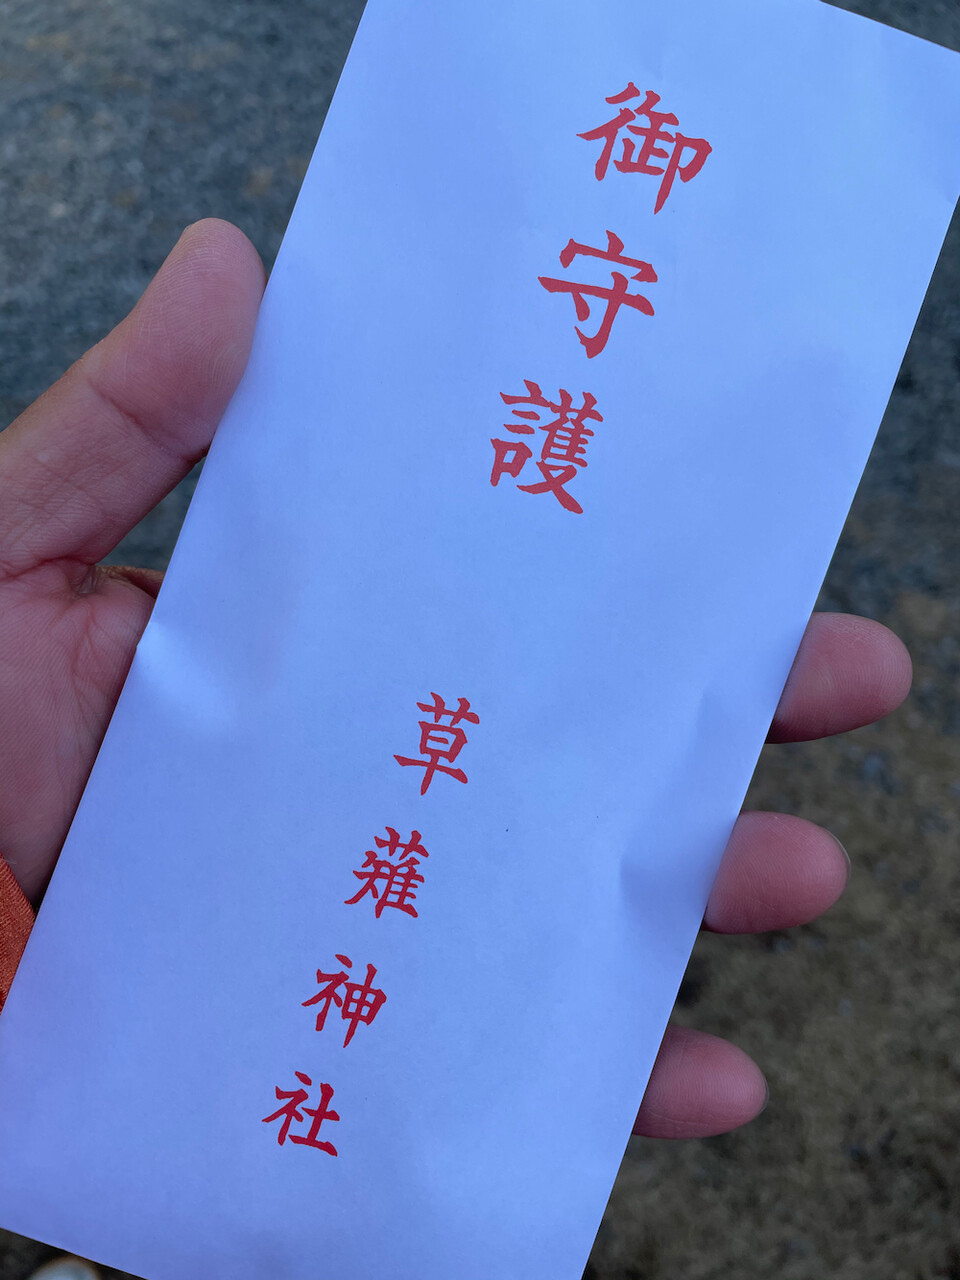 御守護
草薙神社